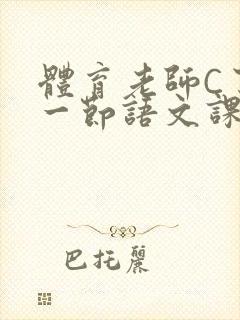 體育老師C
一節語文課
巴托麗